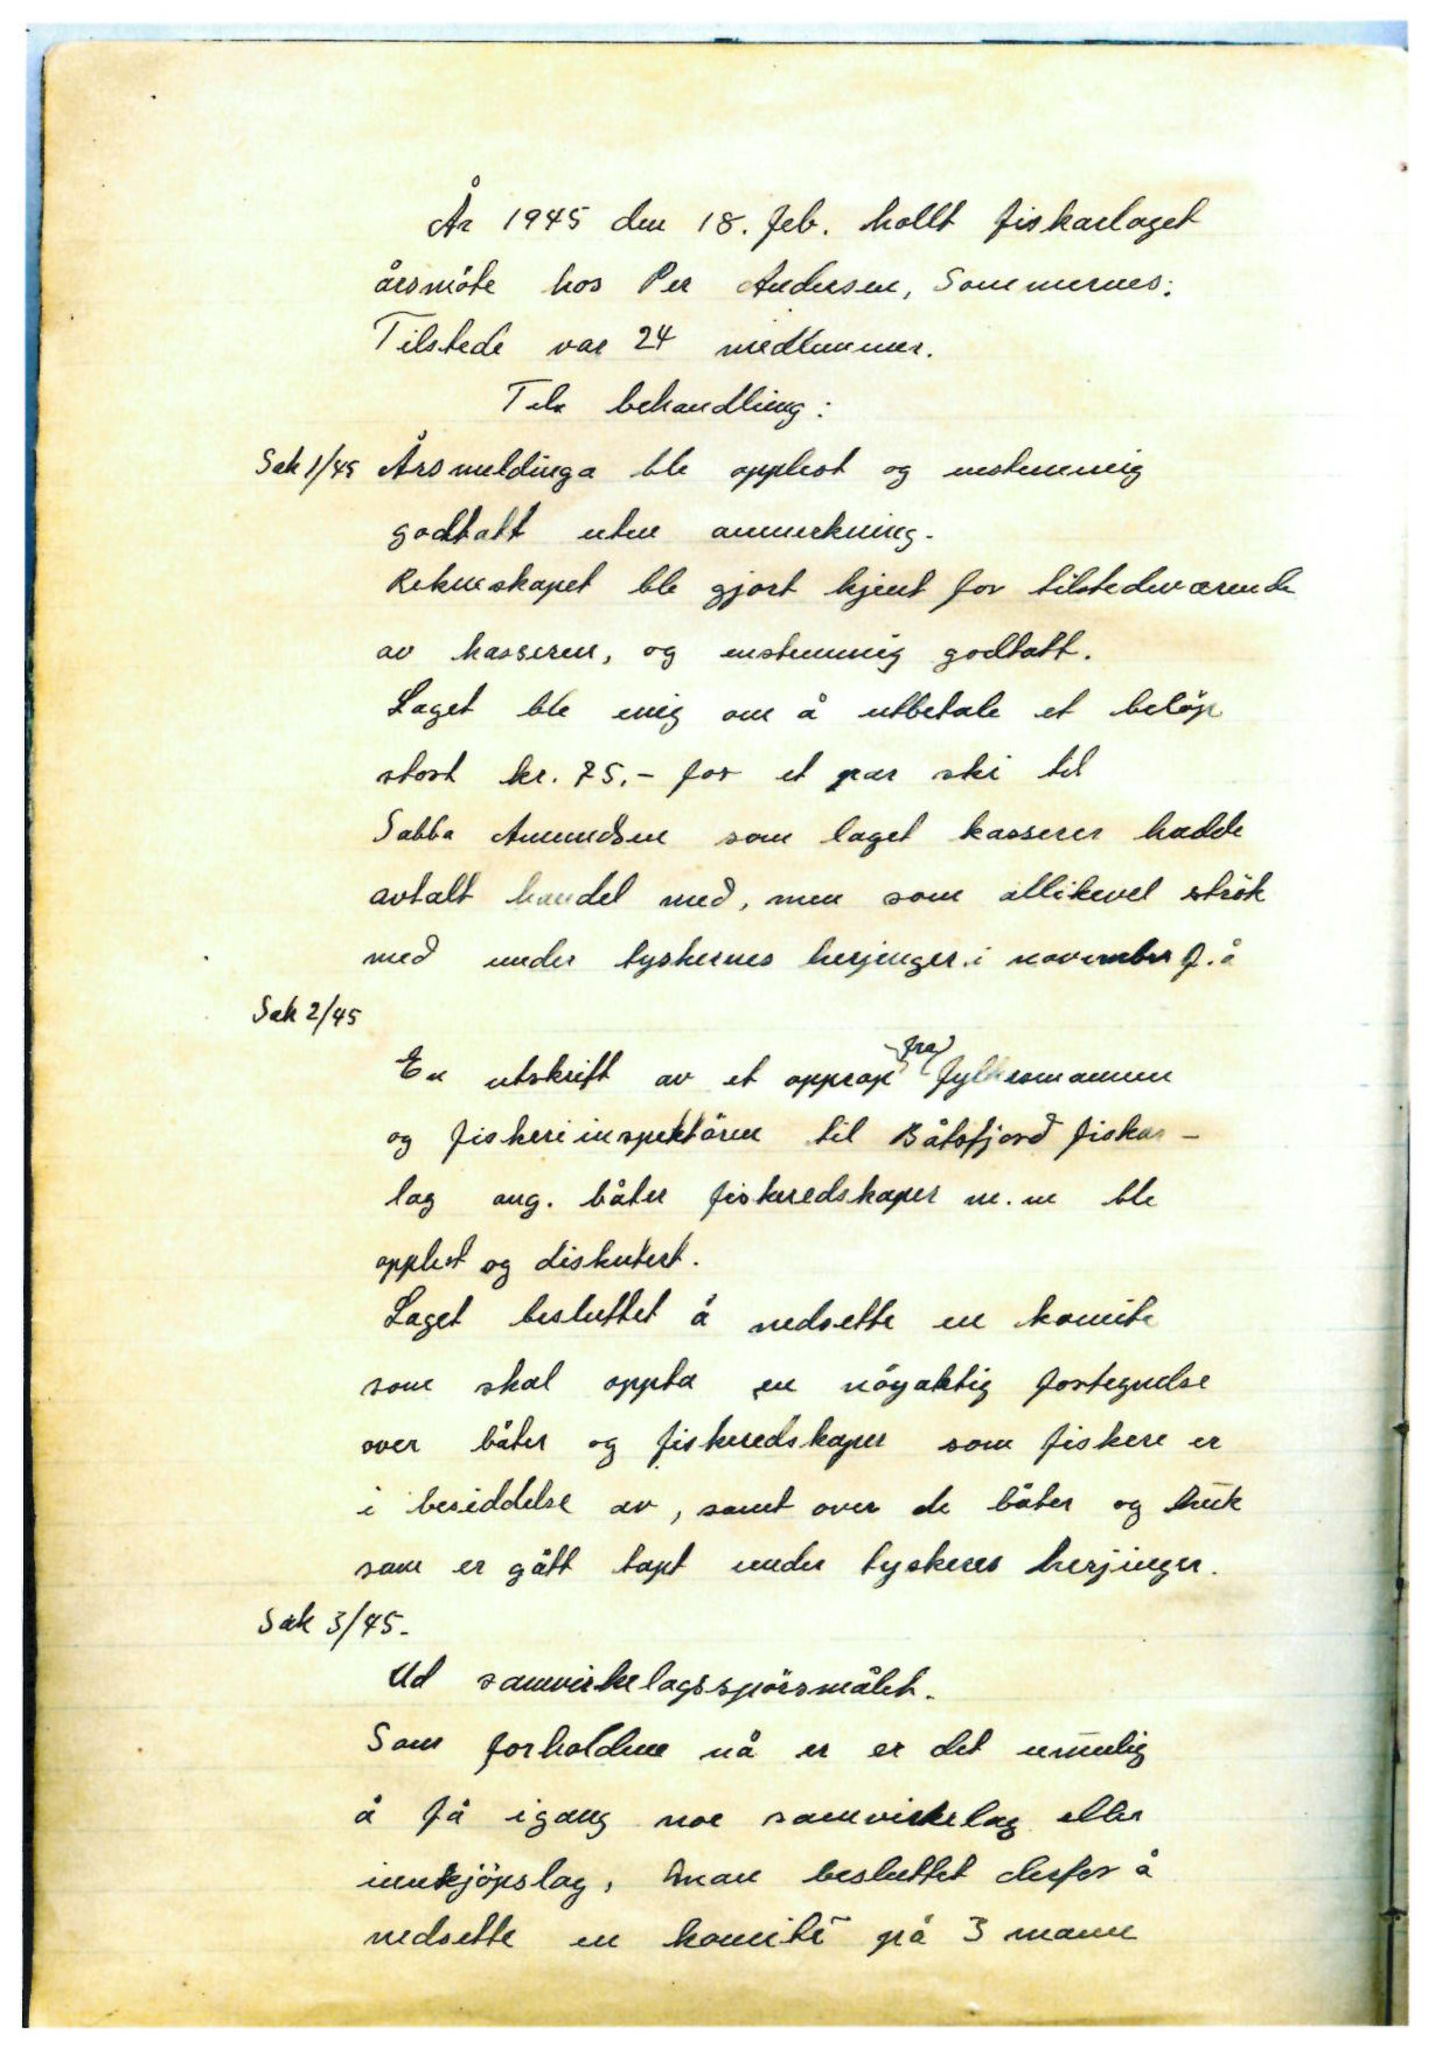 År 1945 den 18. feb. hollt fiskarlaget
årsmöte hos Per Andersen, Sommernes.
Tilstede var 24 medlemmer.
Til behandling:
Sak 1/45 Årsmeldinga ble opplest og enstemmig
godtatt uten anmerkning.
Rekneskapet ble gjort kjent for tilstedeværende
av kasseren, og enstemmig godtatt.
Laget ble enig om å utbetale et belöp
stort kr. 75.- for et par ski til
Sabba Amundsen som laget kasserer hadde
avtalt handel med, men som allikevel strök
med under tyskernes herjinger i november f.å
Sak 2/45
En utskrift av et opprop fra fylkesmannen
og fiskeriinspektören til Båtsfjord fiskar-
lag ang. båter fiskeredskaper m.m ble
opplest og diskutert.
Laget besluttet å nedsette en komite
som skal oppta en nöyaktig fortegnelse
over båter og fiskeredskaper som fiskere er
i besiddelse av, samt over de båter og bruk
som er gått tapt under tyskeres herjinger.
Sak 3/45.
Ad samvirkelagsspörsmålet.
Som forholdene nå er er det umulig
å få igang noe samvirkelag eller
innkjöpslag, man besluttet derfor å
nedsette en komité på 3 mann